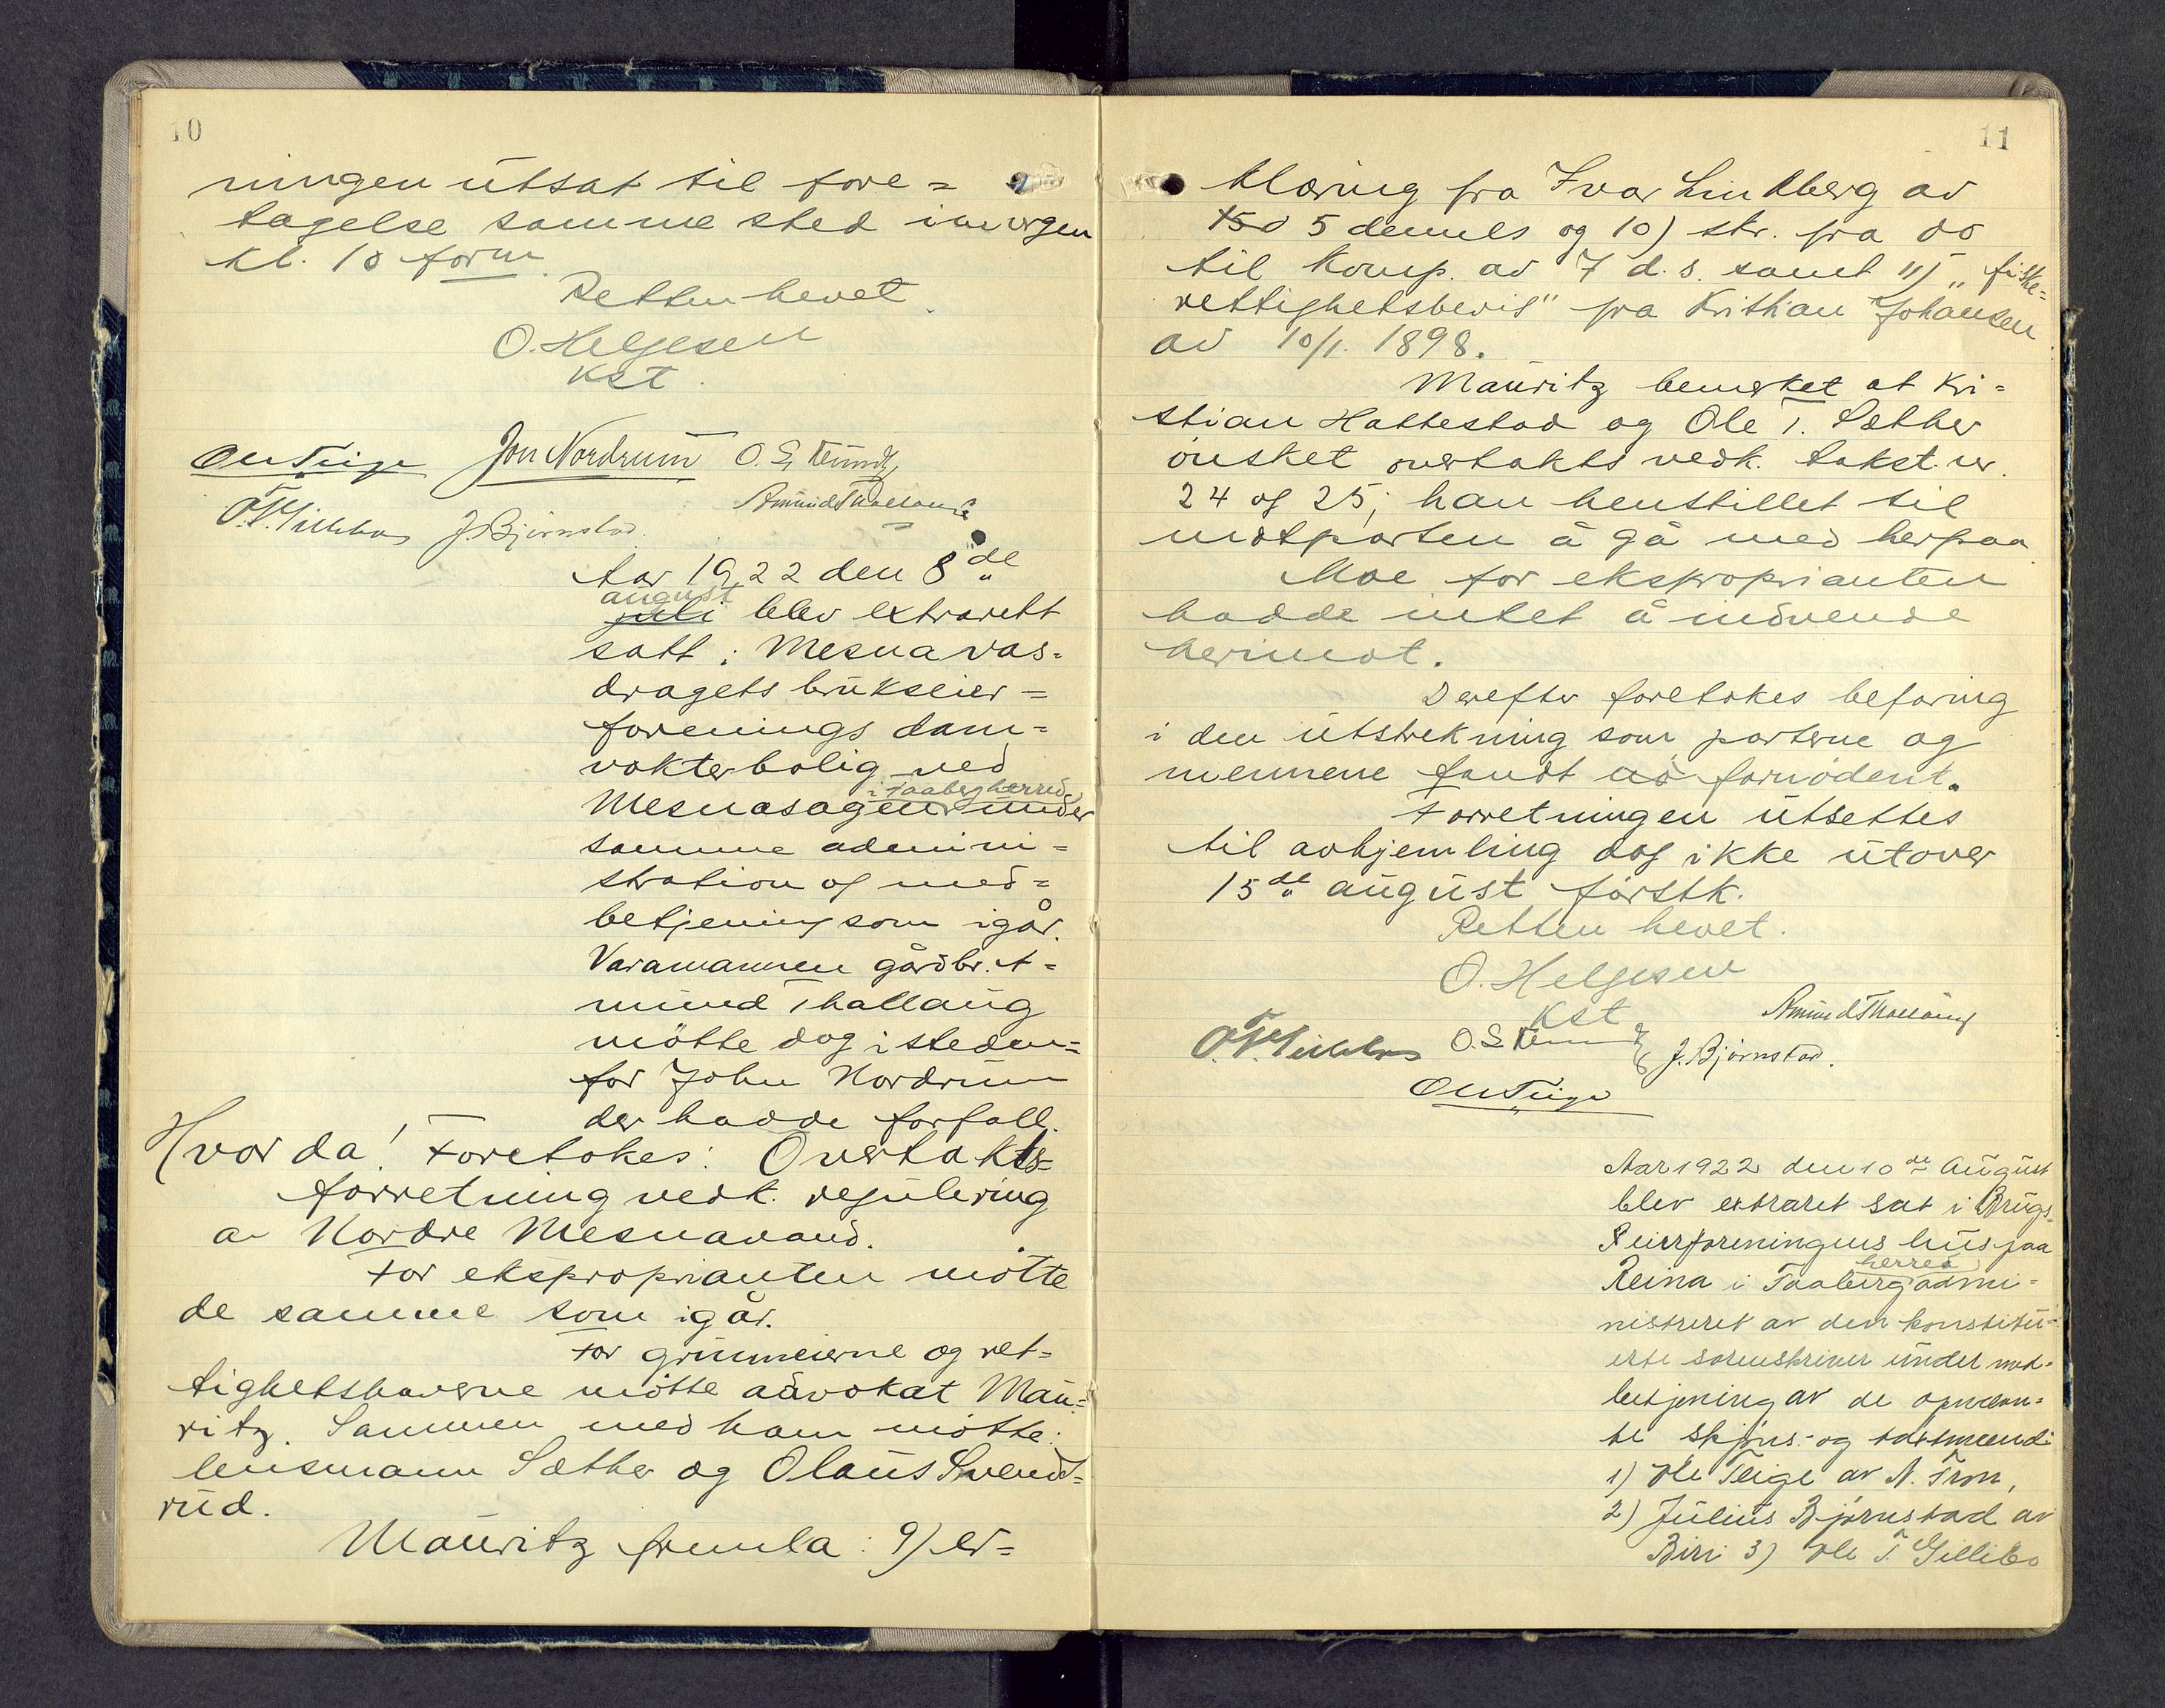 10
ningen utsat til fore=
tagelse samme sted imorgen
kl. 10 form
Retten hevet.
O. Helgesen
kst.
Ole Teige Jon Nordrum O. E.
O. T. Gillebo J. Bjørnstad. Amund Thallaug
Aar 1922 den 8de
august
juli blev extrarett
satt i Mesnavas=
dragets brukseier=
forenings dam=
vokterbolig ved
i Faaberg herred
Mesnasagen under
samme admini=
stration og med=
betjening som igår.
Varamannen gårdbr. A=
mund Thallaug
møtte dog isteden=
for John Nordrum
der hadde forfall.
Hvor da! Foretokes: Overtakts=
forretning vedk. regulering
av Nordre Mesnavand.
For eksproprianten møtte
de samme som igår.
For grunneierne og ret=
tighetshaverne møtte advokat Mau=
ritz. Sammen med ham møtte:
lensmann Sæther og Olaus Svend=
rud.
Mauritz fremla: 9) er=
11
klæring fra Ivar Lindberg av
5 dennes og 10) skr. fra do
til Komp. av 7 d.s. samt 11) "fiske=
rettighetsbevis" fra Kristian Johansen
av 10/1. 1898.
Mauritz bemerket at Kri=
stian Hattestad og Ole T. Sæther
ønsket overtakts vedk. takst. nr.
24 og 25; han henstillet til
motparten å gå med herpaa.
Moe for eksproprianten
hadde intet å indvende
herimot.
Derefter foretokes befaring
i den utstrekning som parterne og
mennene fandt det fornødent.
Forretningen utsettes
til avhjemling dog ikke utover
15de august førstk.
Retten hevet.
O. Helgesen
kst
O. T. Gillebo O. E. J. Bjørnstad. Amund Thallaug
Ole Teige
Aar 1922 den 10de August
blev extraret sat i Brugs=
eierforeningens hus paa
herred
Reina i Faaberg admi=
nistreret av den konstitu=
erte sorenskriver under med=
betjening av de opnævn=
te skjøns- og takstmænd:
1) Ole Teige av N. Fron,
2) Julius Bjørnstad av
Biri 3) Ole T. Gillebo